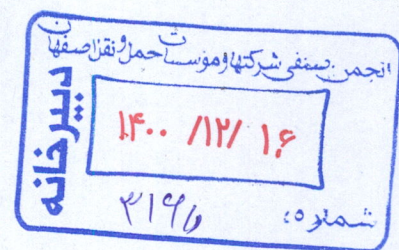 انجمن صنفی شرکتها و مؤسسات حمل و نقل اصفهان
دبیرخانه
۱۴۰۰ /۱۲/ ۱۶
شماره: